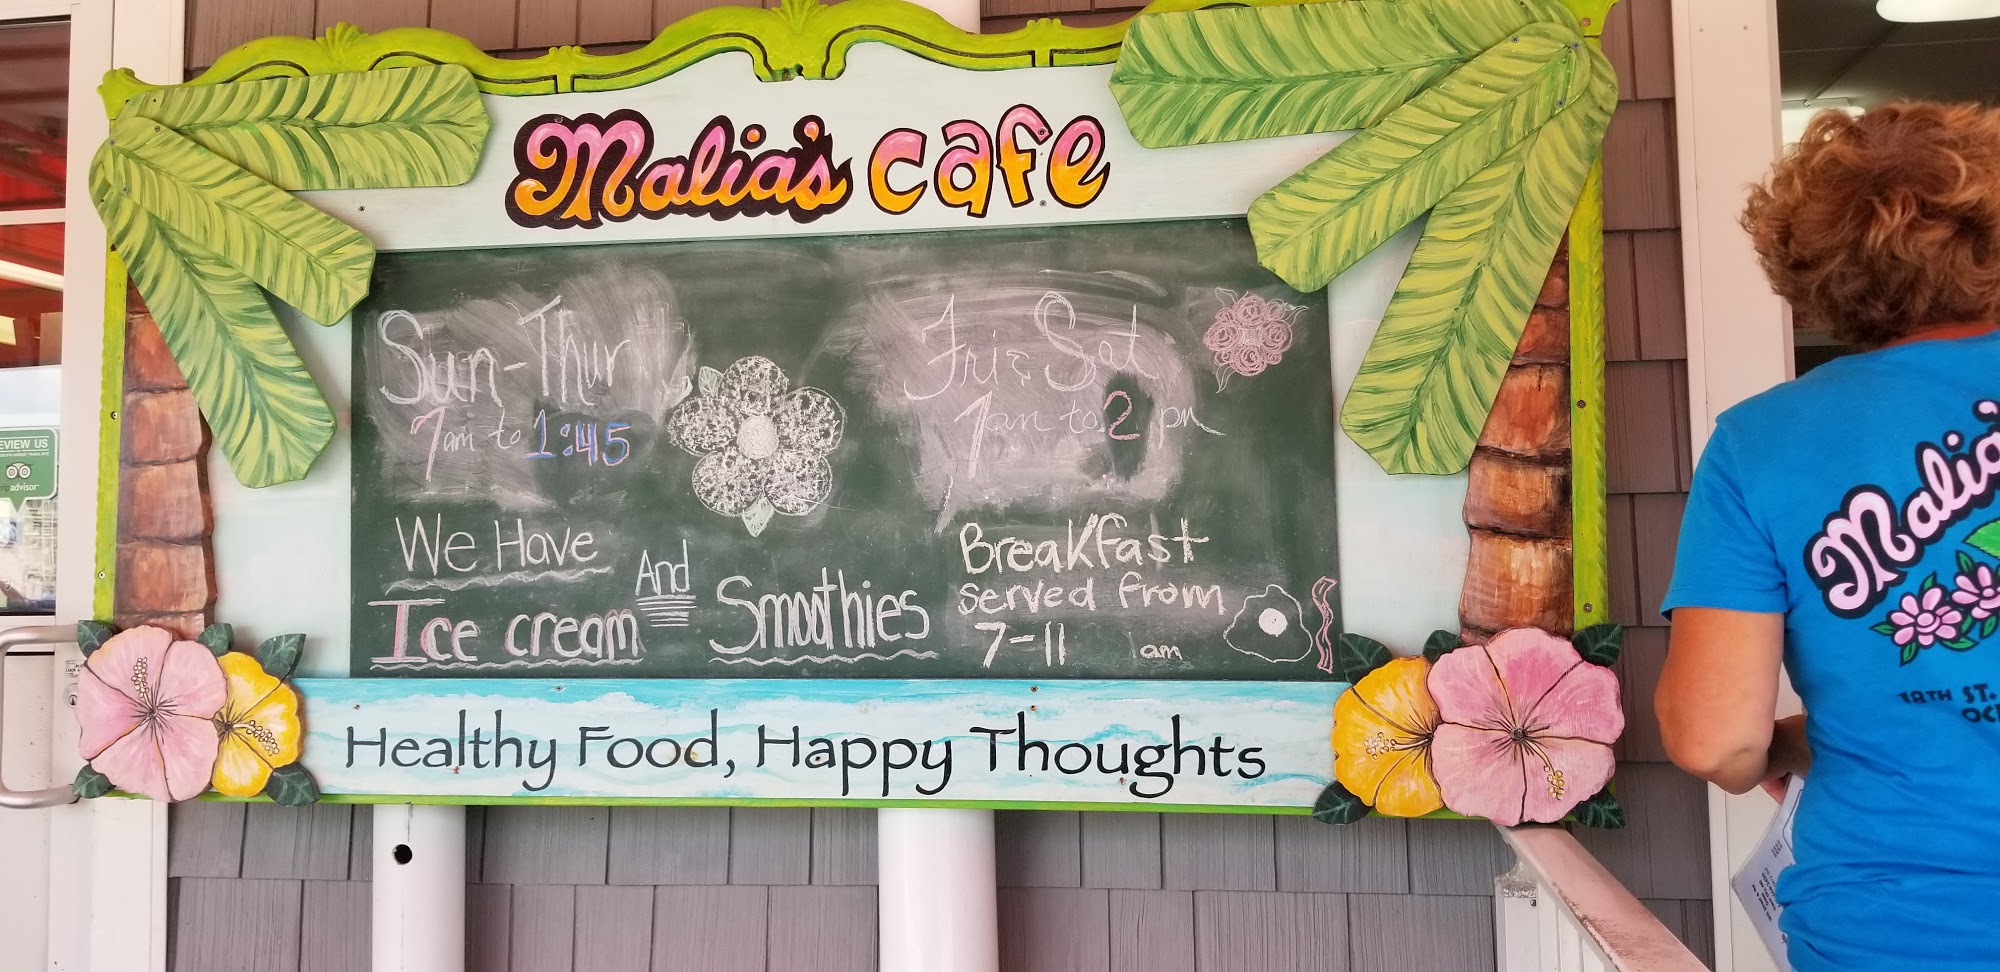 Malia's cafe
Sun-Thur
7am to 1:45
Fri & Sat
7am to 2 pm
We Have
Ice cream
And
Smoothies
Breakfast
served from
7-11 am
Healthy Food, Happy Thoughts
EVIEW US
advisor
Malia's
18TH ST.